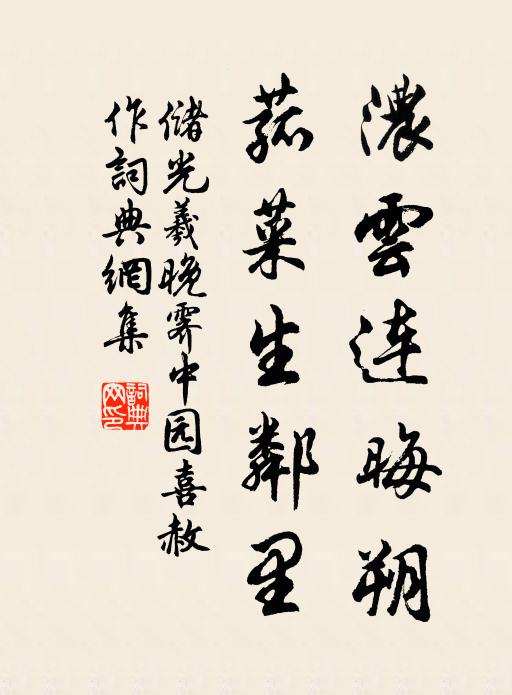 濃雲连晦朔
菰菜生鄰里
儲光羲晚霽中园喜赦
作詞典網集
詞典网印